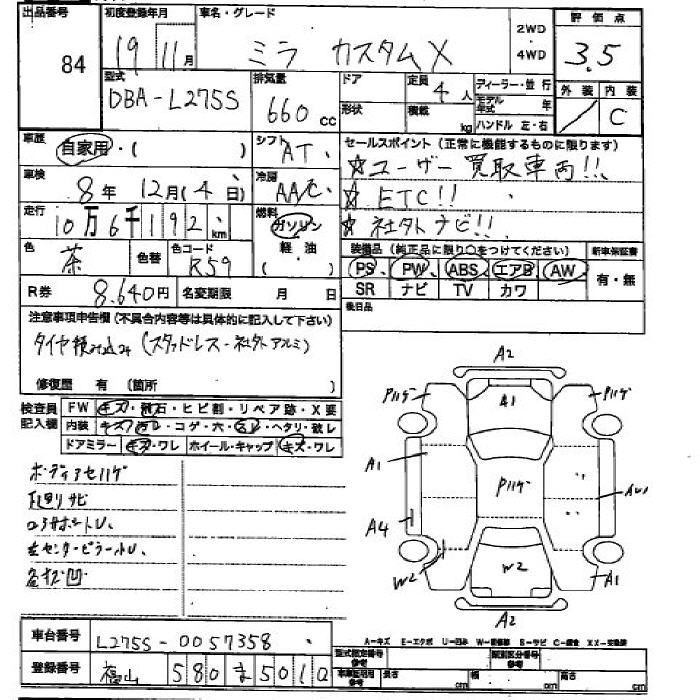 出品番号
84
初度登録年月
19 11月
車名・グレード
ミラ カスタムX
2WD
4WD
評価点
3.5
型式
DBA-L275S
排気量
660 cc
ドア
形状
定員
4人
積載
kg
ディーラー・並行
モデル年式 年
ハンドル 左・右
外装 内装
C
車歴
自家用・( )
シフト
AT
セールスポイント(正常に機能するものに限ります)
☆ユーザー買取車両!!
☆ETC!!
☆社外ナビ!!
車検
8年12月(4日)
冷房
AA/C
走行
10万6千192km
燃料
ガソリン
軽油
( )
色
茶
色替
色コード
R59
装備品(純正品に限り○をつけてください)
新車保証書
PS PW ABS エアB AW
SR ナビ TV カワ
有・無
R券 8,640円
名変期限 月 日
後日品
注意事項申告欄(不具合内容等は具体的に記入して下さい)
タイヤ積み込み(スタッドレス-社外アルミ)
修復歴 有(箇所 )
検査員記入欄
FW キズ・飛石・ヒビ割・リペア跡・X要
内装 キズ・汚レ・コゲ・穴・スレ・ヘタリ・欲レ
ドアミラー キズ・ワレ ホイール・キャップ キズ・ワレ
ボディアセハゲ
下回りサビ
コアサポートU、
左センターピラー小U、
A2
A1
Pハゲ
Pハゲ
A1
Pハゲ
A4
W2
W2
A1
A2
車台番号
L275S-0057358
登録番号
福山 580 ま 5010
A-キズ E-エクボ U-凹み W-補修跡 S-サビ C-腐食 XX-交換済
型式指定番号
参考
類別区分番号
参考
車庫証明用
参考
長さ cm
幅 cm
高さ cm